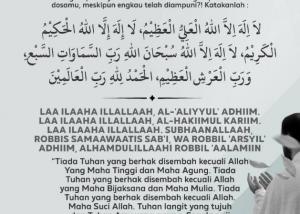 dosamu, meskipun engkau telah diampuni?! Katakanlah :
لَا إِلَهَ إِلَّا اللهُ الْعَلِيُّ الْعَظِيْمُ، لَا إِلَهَ إِلَّا اللهُ الْحَكِيْمُ
الْكَرِيْمُ، لَا إِلَهَ إِلَّا اللهُ سُبْحَانَ اللهِ رَبِّ السَّمَاوَاتِ السَّبْعِ،
وَرَبِّ الْعَرْشِ الْعَظِيْمِ، الْحَمْدُ لِلَّهِ رَبِّ الْعَالَمِيْنَ
LAA ILAAHA ILLALLAAH, AL-'ALIYYUL' ADHIIM.
LAA ILAAHA ILLALLAH, AL-HAKIIMUL KARIIM.
LAA ILAAHA ILLALLAAH. SUBHAANALLAAH,
ROBBIS SAMAAWAATIS SAB'I, WA ROBBIL 'ARSYIL'
ADHIIM, ALHAMDULILLAAHI ROBBIL 'AALAMIIN
"Tiada Tuhan yang berhak disembah kecuali Allah
Yang Maha Tinggi dan Maha Agung. Tiada
Tuhan yang berhak disembah kecuali Allah
yang Maha Bijaksana dan Maha Mulia. Tiada
Tuhan yang berhak disembah kecuali Allah,
Maha Suci Allah. Tuhan langit yang tujuh